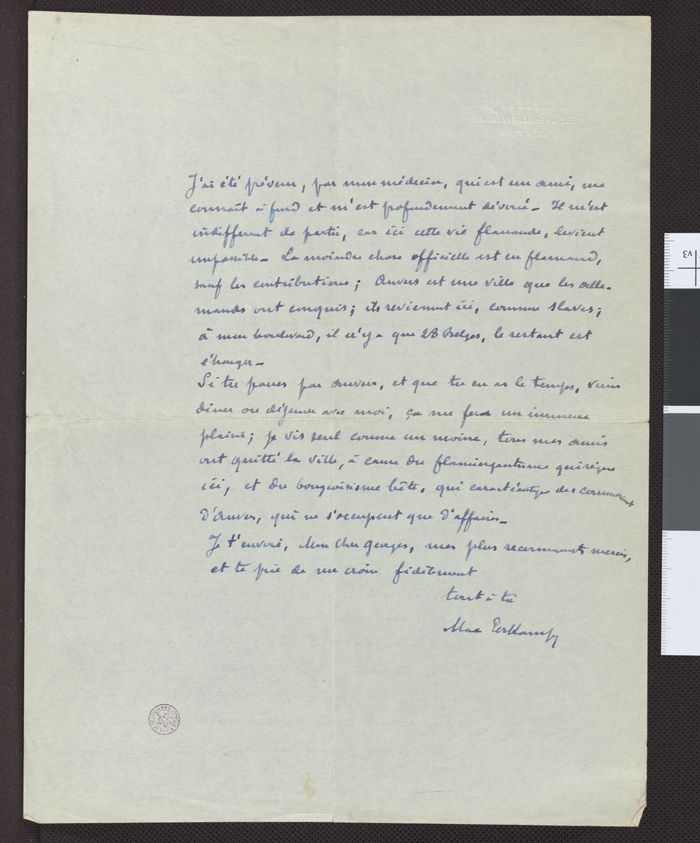 J'ai été prévenu, par mon médecin, qui est un ami, me
connaît à fond et m'est profondément dévoué - Il m'est
indifférent de partir, car ici cette vie flamande, devient
impossible - La moindre chose officielle est en flamand,
sauf les contributions; Anvers est une ville que les alle-
mands ont conquis; ils reviennent ici, comme slaves;
à mon boulevard, il n'y a que 28 Belges, le restant est
étranger -
Si tu passes par Anvers, et que tu en as le temps, viens
diner ou déjeuner avec moi, ça me fera un immense
plaisir; je vis seul comme un moine, tous mes amis
ont quitté la ville, à cause du flamingantisme qui règne
ici, et du bourgeoisisme bête, qui des
d'Anvers, qui ne s'occupent que d'affaires -
Je t'envoie, Mon cher Georges, mes plus reconnaissants mercis,
et te prie de me croire fidèlement
tout à toi
Max Elskamp